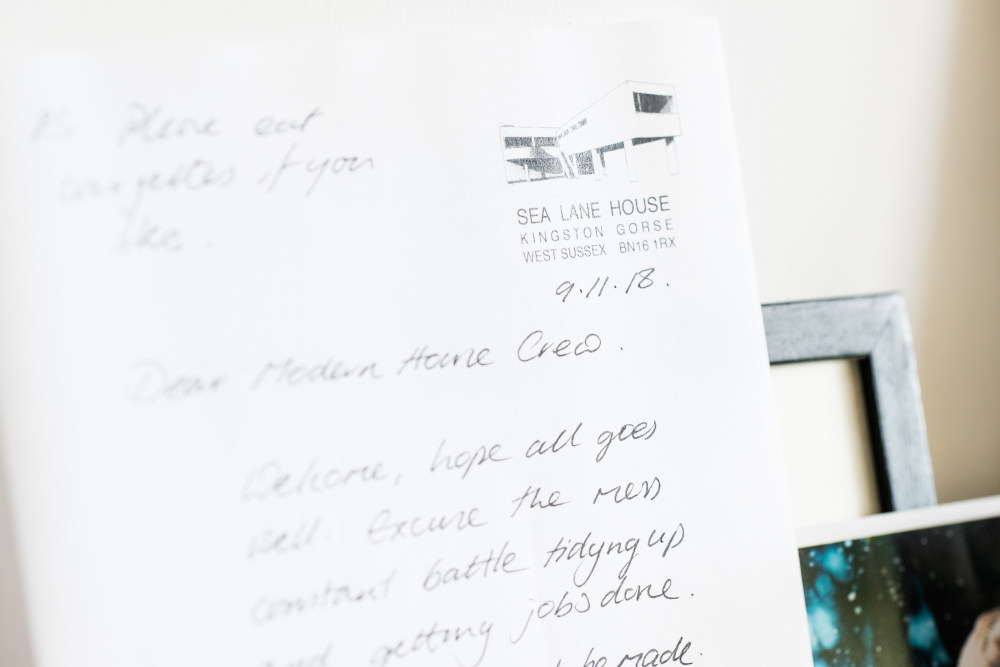 PS Please eat
courgettes if you
like.
SEA LANE HOUSE
KINGSTON GORSE
WEST SUSSEX BN16 1RX
9.11.18.
Dear Modern House Crew.
Welcome, hope all goes
well. Excuse the mess
constant battle tidyng up
and getting jobs done.
be made.